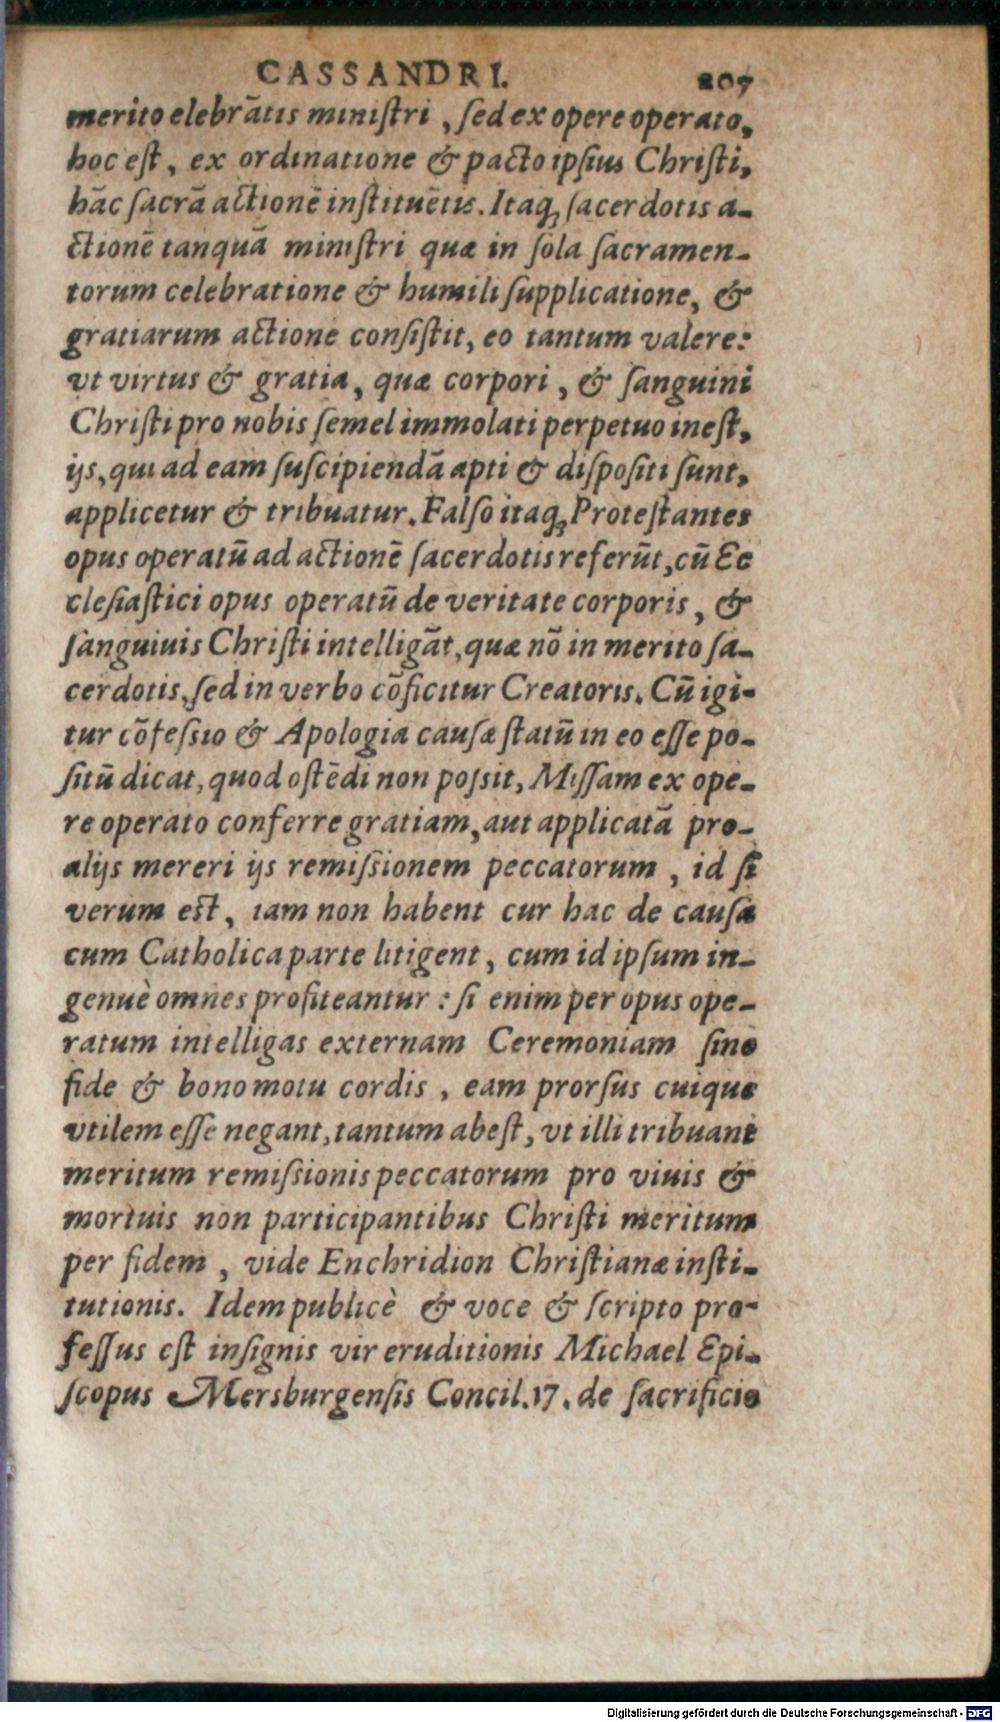 CASSANDRI. 207
merito elebrātis miniſtri, ſed ex opere operato,
hoc eſt, ex ordinatione & pacto ipſius Chriſti,
hāc ſacrā actionē inſtituētis. Itaq; ſacerdotis a-
ctionē tanquā miniſtri quæ in ſola ſacramen-
torum celebratione & humili ſupplicatione, &
gratiarum actione conſiſtit, eo tantum valere:
vt virtus & gratia, quæ corpori, & ſanguini
Chriſti pro nobis ſemel immolati perpetuo ineſt,
ijs, qui ad eam ſuſcipiendā apti & diſpoſiti ſunt,
applicetur & tribuatur. Falſò itaq; Proteſtantes
opus operatū ad actionē ſacerdotis referūt, cū Ec
cleſiaſtici opus operatū de veritate corporis, &
ſanguiuis Chriſti intelligāt, quæ nō in merito ſa-
cerdotis, ſed in verbo cōficitur Creatoris. Cū igi-
tur cōfeſsio & Apologia cauſæ ſtatū in eo eſſe po-
ſitū dicat, quod oſtēdi non poſsit, Miſſam ex ope-
re operato conferre gratiam, aut applicatā pro-
alijs mereri ijs remiſsionem peccatorum, id ſi
verum eſt, iam non habent cur hac de cauſa
cum Catholica parte litigent, cum id ipſum in-
genuè omnes profiteantur: ſi enim per opus ope-
ratum intelligas externam Ceremoniam ſine
fide & bono motu cordis, eam prorſus cuique
vtilem eſſe negant, tantum abeſt, vt illi tribuant
meritum remiſsionis peccatorum pro viuis &
mortuis non participantibus Chriſti meritum
per fidem, vide Enchridion Chriſtianæ inſti-
tutionis. Idem publicè & voce & ſcripto pro-
feſſus eſt inſignis vir eruditionis Michael Epi-
ſcopus Mersburgenſis Concil. 17. de ſacrificio
Digitalisierung gefördert durch die Deutsche Forschungsgemeinschaft - DFG